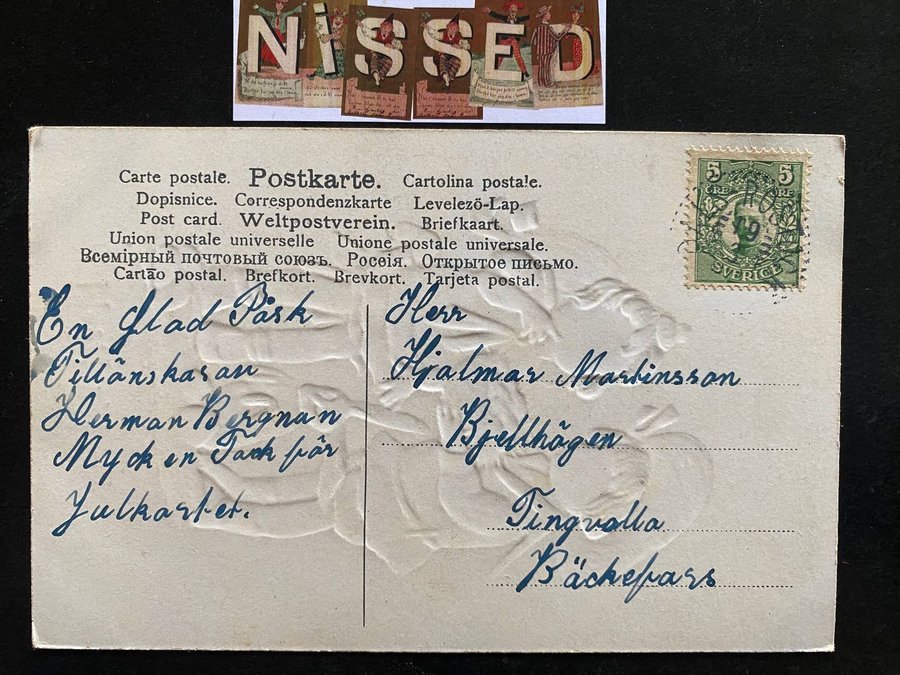 NiSSED
Carte postale. Postkarte. Cartolina postale.
Dopisnice. Correspondenzkarte Levelezö-Lap.
Post card. Weltpostverein. Briefkaart.
Union postale universelle Unione postale universale.
Всемірный почтовый союзъ. Росеія. Открытое письмо.
Cartão postal. Brefkort. Brevkort. Tarjeta postal.
5 5
ÖRE ÖRE
SVERIGE
En Glad Påsk
Tillönskaran
Herman Bergnan
Mycken Tack för
Julkortet.
Herr
Hjalmar Martinsson
Bjellhögen
Tingvalla
Bäckefors